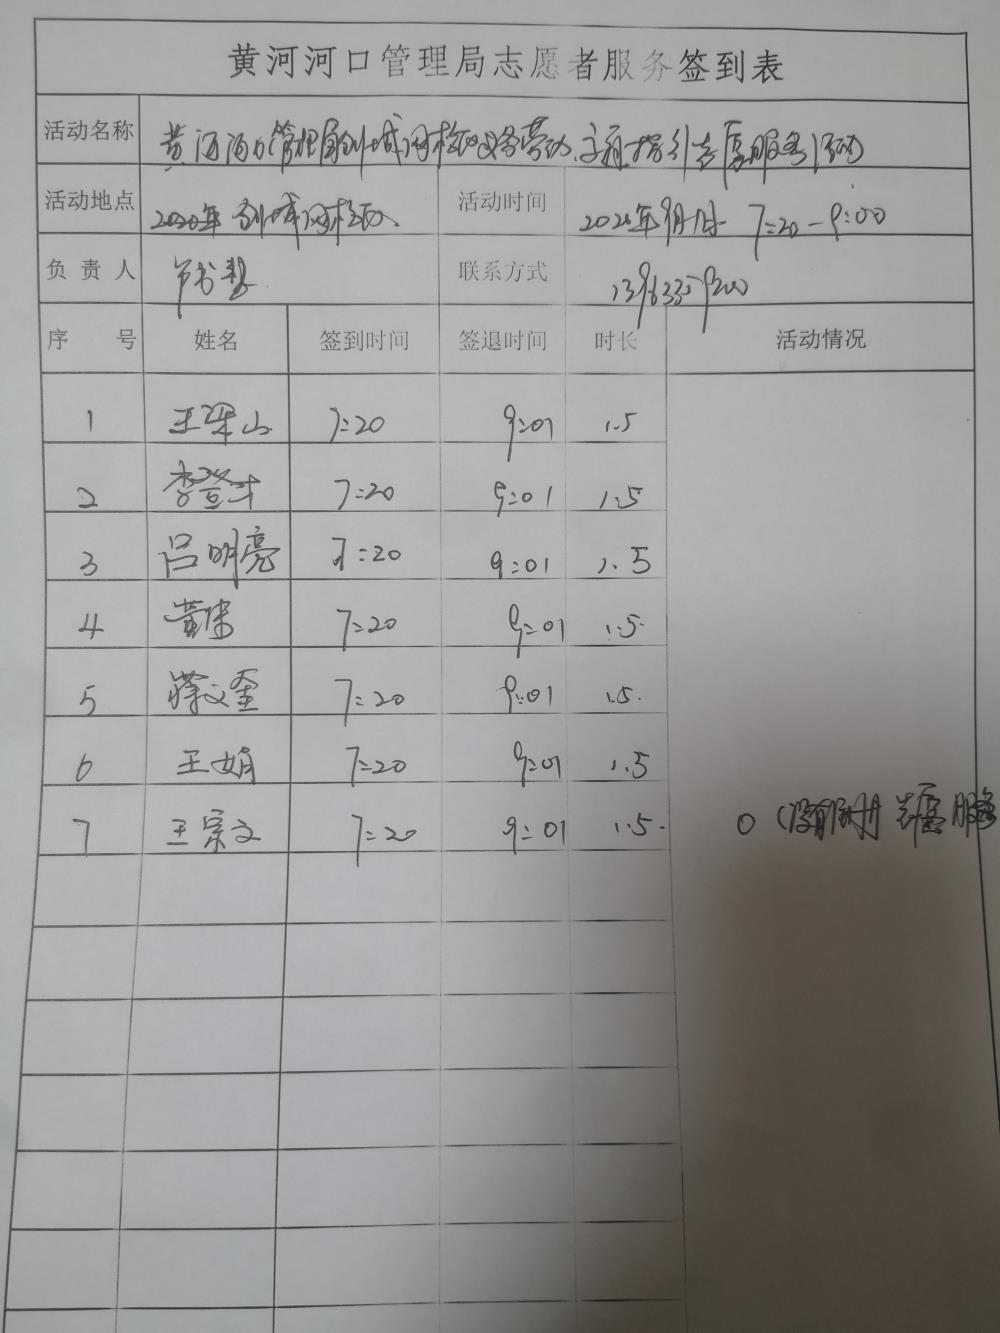 黄河河口管理局志愿者服务签到表
活动名称 黄河河口管理局创城网格区义务劳动、交通指引志愿服务活动
活动地点 2020年创城网格区 活动时间 7:20-9:00
负责人 联系方式
序号 姓名 签到时间 签退时间 时长 活动情况
1 王梁山 7:20 9:01 1.5
2 李登 7:20 9:01 1.5
3 吕明亮 7:20 9:01 1.5
4 黄 7:20 9:01 1.5
5 文奎 7:20 9:01 1.5
6 王娟 7:20 9:01 1.5
7 王宗文 7:20 9:01 1.5 志愿服务